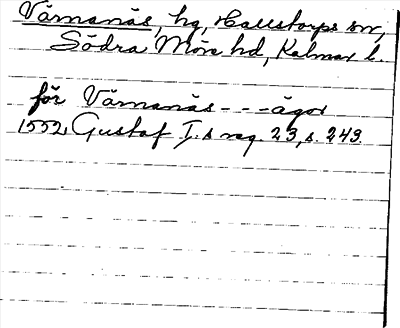 Värnanäs, hg, Hallstorps sn,
Södra Möre hd, Kalmar l.
för Värnanäs - - - ägor
1552, Gustaf I.s reg. 23, s. 249.